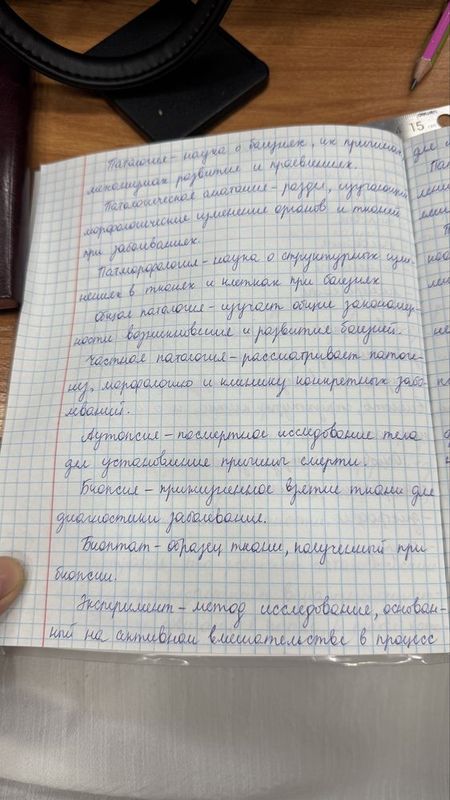 Патология - наука о болезнях, их причинах,
механизмах развития и проявлениях.
Патологическая анатомия - раздел, изучающий
морфологические изменение органов и тканей
при заболеваниях.
Патморфология - наука о структурных изме-
нениях в тканях и клетках при болезнях
Общая патология - изучает общие закономер-
ности возникновение и развития болезней.
Частная патология - рассматривает патоге-
нез, морфологию и клинику конкретных забо-
леваний.
Аутопсия - посмертное исследование тела
для установление причины смерти.
Биопсия - прижизненное взятие ткани для
диагностики заболевание.
Биоптат - образец ткани, полученный при
биопсии.
Эксперимент - метод исследование, основан-
ный на активном вмешательстве в процесс
15
для